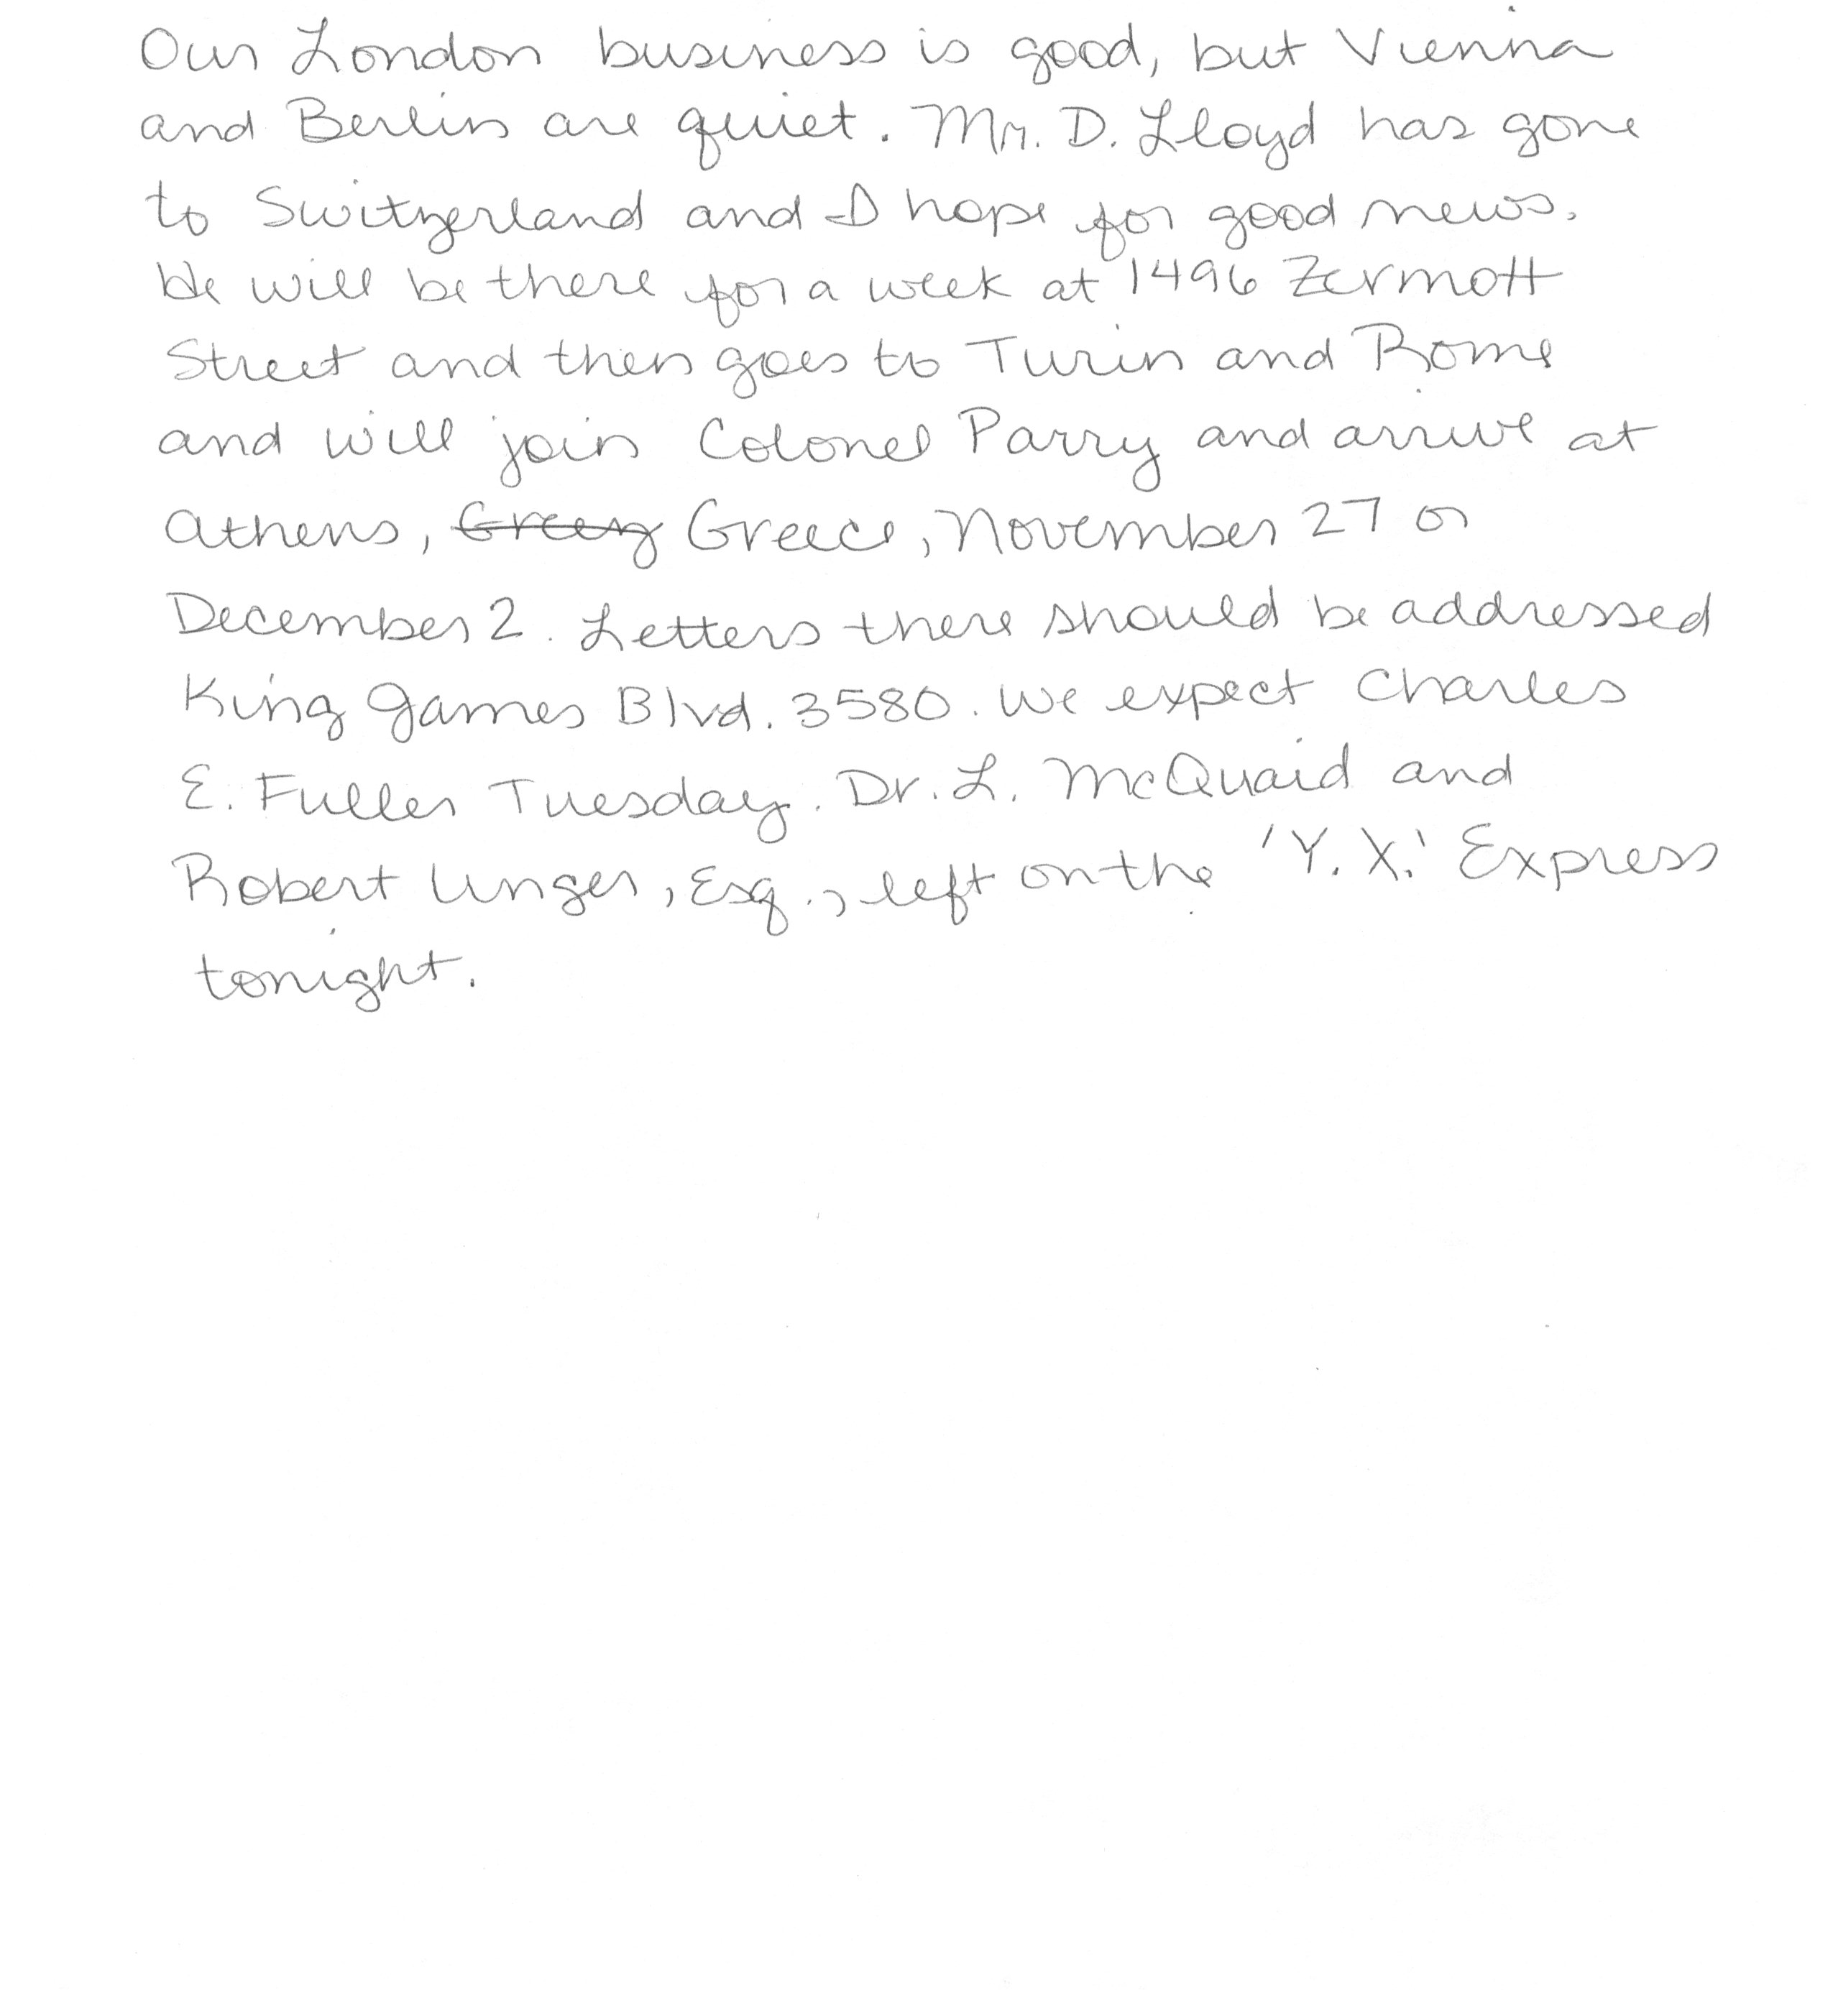 Our London business is good, but Vienna
and Berlin are quiet. Mr. D. Lloyd has gone
to Switzerland and I hope for good news.
He will be there for a week at 1496 Zermott
Street and then goes to Turin and Rome
and will join Colonel Parry and arrive at
Athens, Greece, November 27 or
December 2. Letters there should be addressed
King James Blvd. 3580. We expect Charles
E. Fuller Tuesday. Dr. L. McQuaid and
Robert Unger, Esq., left on the 'Y. X.' Express
tonight.